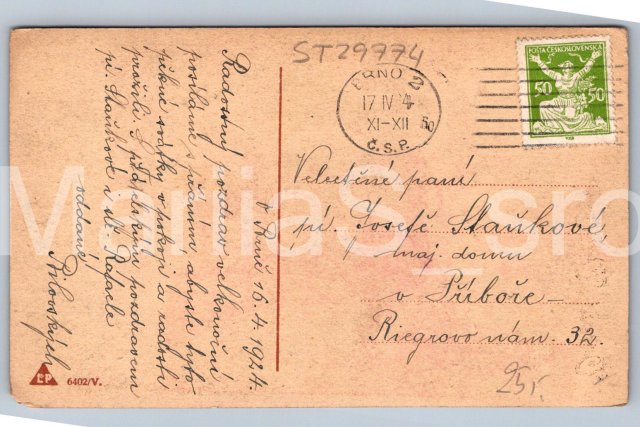 ST29974
POŠTA ČESKOSLOVENSKÁ
50 50
BRNO 2
17 IV 4
XI-XII 50
Č.S.P.
Radostný pozdrav velkonoční
posíláme s přáním, abyste tyto
pěkné svátky v pokoji a radosti
prožili. S přátelským pozdravem
pí. Staňkové i sl. Rafaele
oddaně
v Brně 16. 4. 1924.
Velectěné paní
pí. Josefě Staňkové,
maj. domu
v Příboře
Riegrovo nám. 32.
25,-
LP
6402/V.
ManiaS_sro